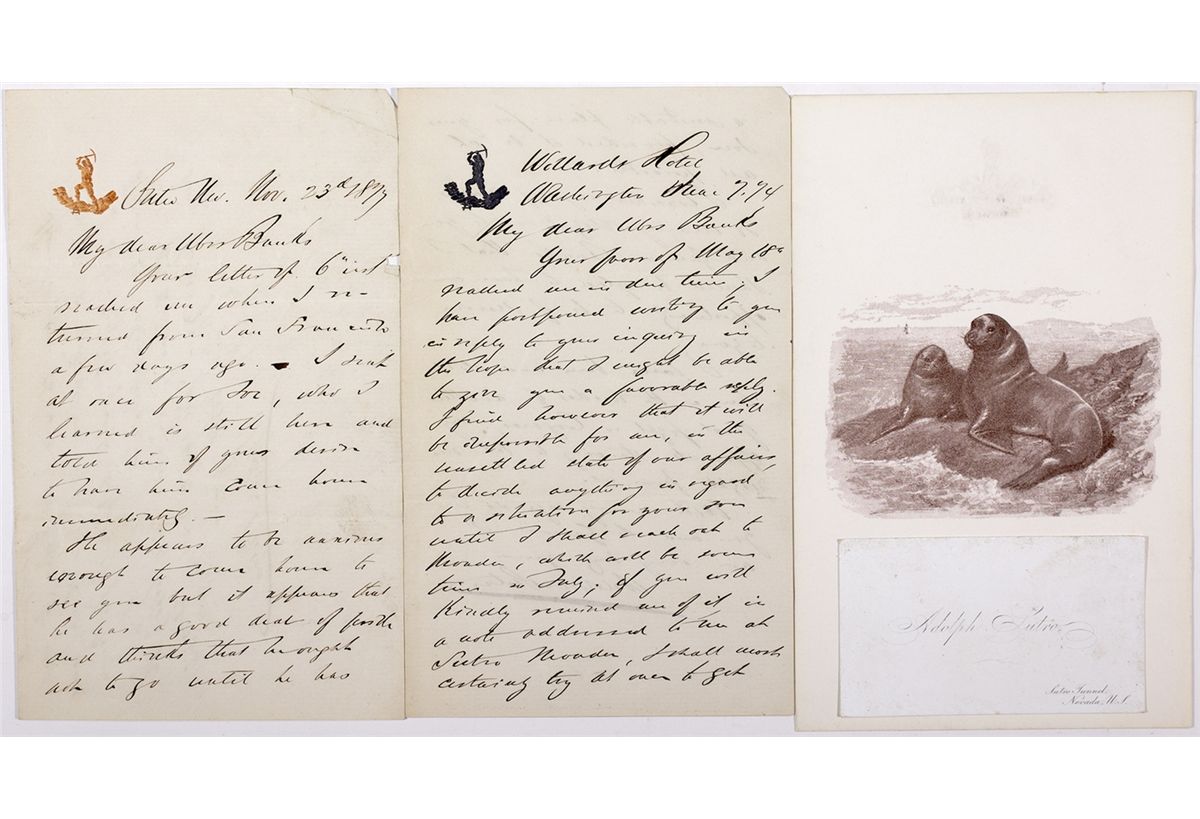 Sutro Nev. Nov. 23d 1877
My dear Mrs Banks
Your letter of 6" inst
reached me when I re-
turned from San Francisco
a few days ago. — I sent
at once for Joe, who I
learned is still here and
told him of your desire
to have him come home
immediately. —
He appears to be anxious
enough to come home to
see you but it appears that
he has a good deal of
and thinks that he ought
not to go until he has
Willards Hotel
Washington June 7. 74
My dear Mrs Banks
Your favor of May 18"
reached me in due time; I
have postponed writing to you
in reply to your inquiry in
the hope that I might be able
to give you a favorable reply.
I find however that it will
be impossible for me, in the
unsettled state of our affairs,
to decide anything in regard
to a situation for your son
until I shall reach out to
Nevada, which will be some
time in July; if you will
Kindly remind me of it in
a note addressed to me at
Sutro Nevada, I shall most
certainly try at once to get
Adolph Sutro
Sutro Tunnel,
Nevada, U.S.